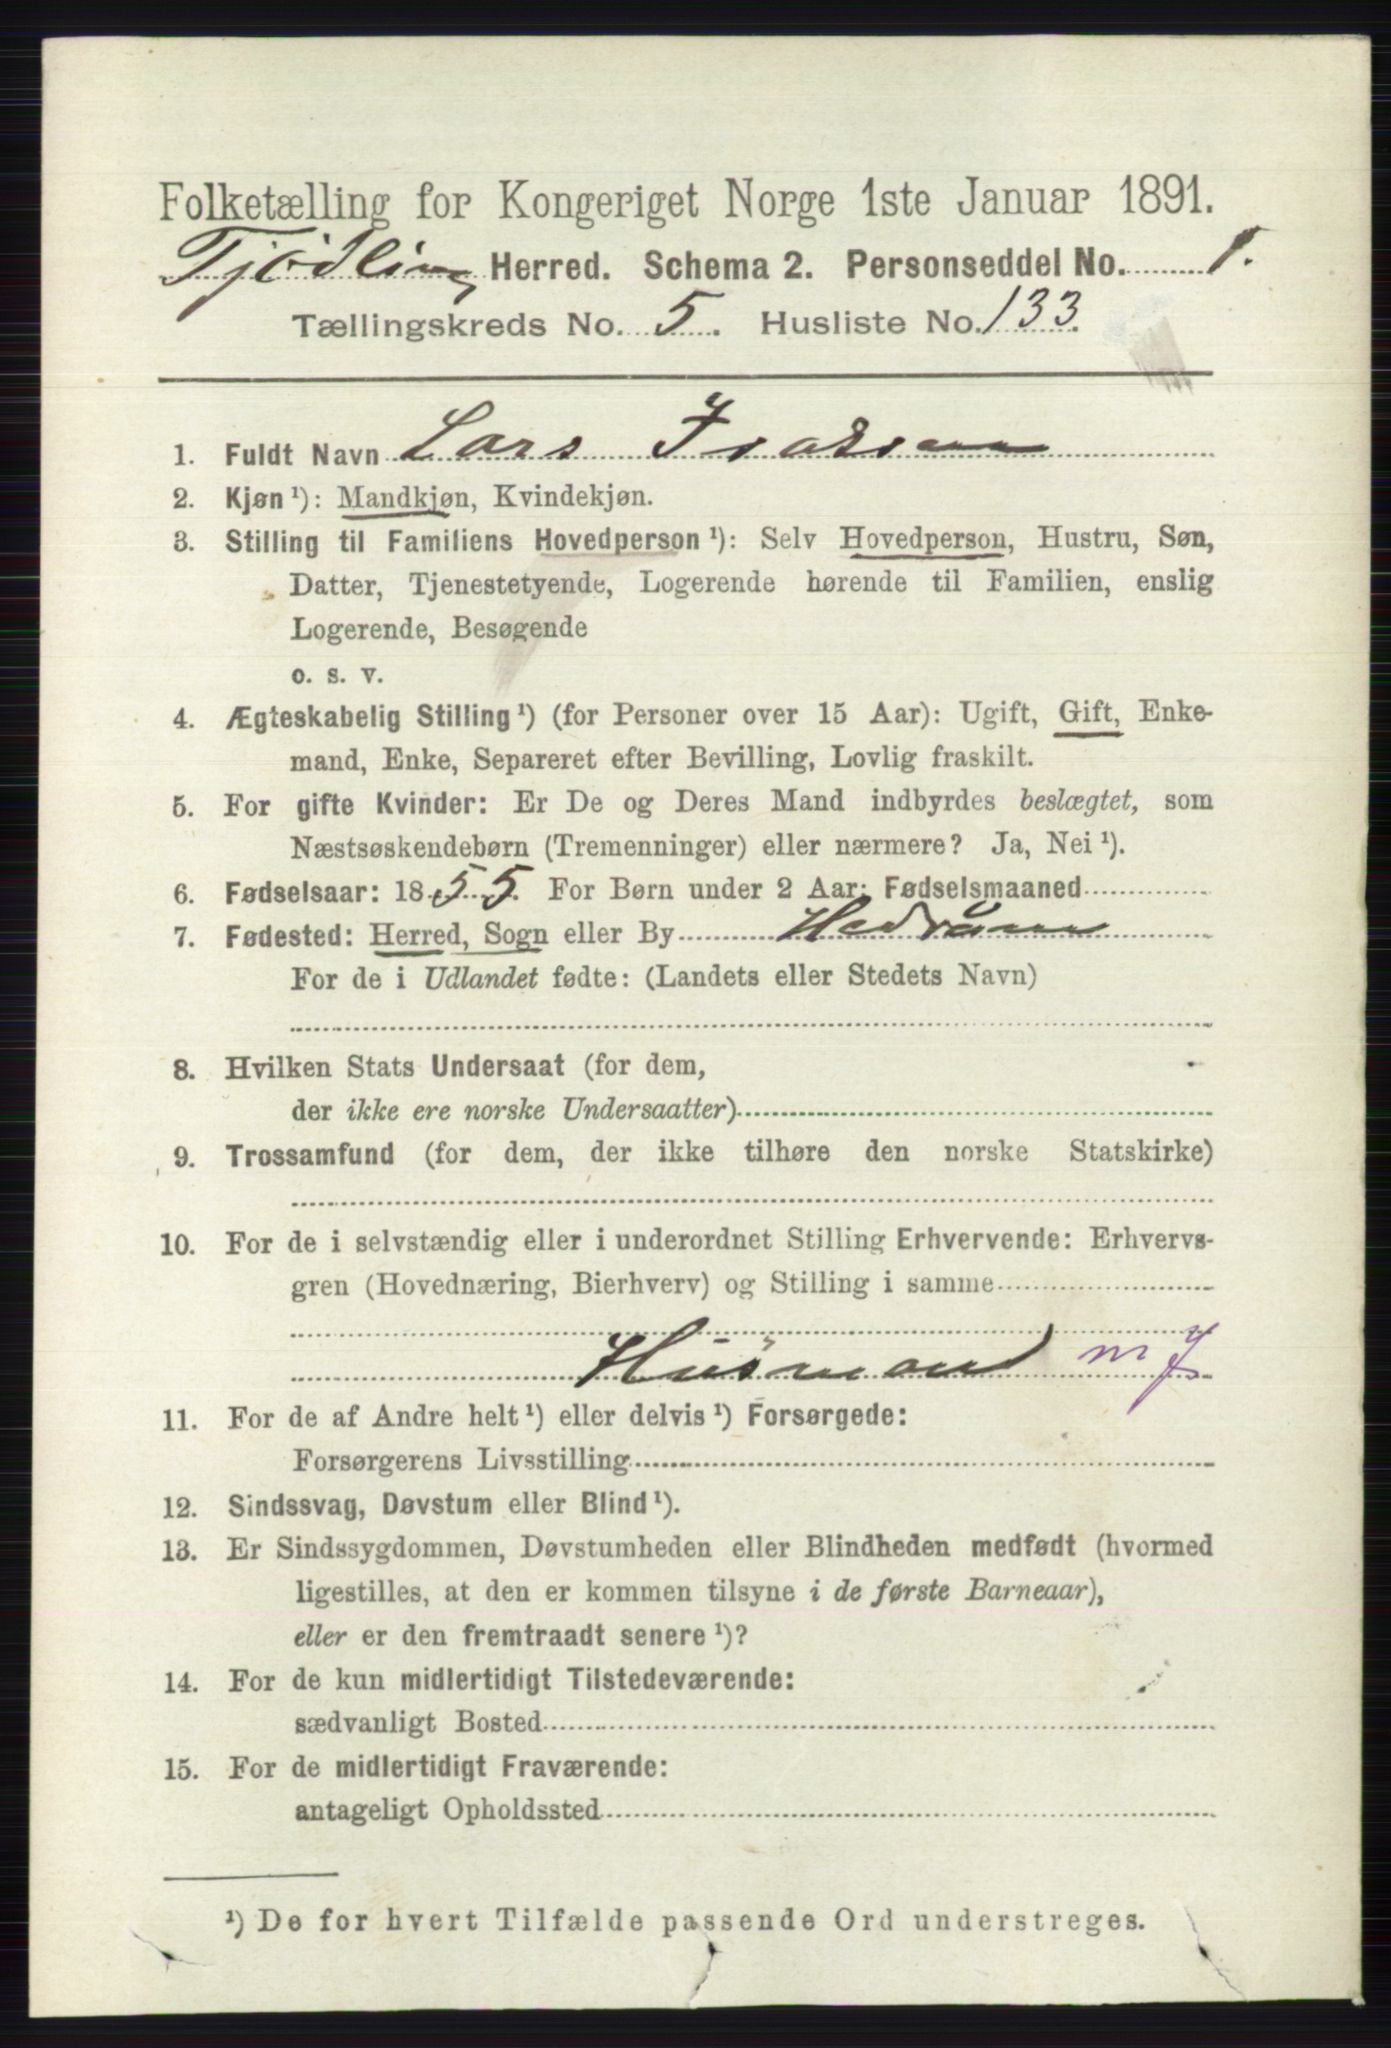 Folketælling for Kongeriget Norge 1ste Januar 1891.
Tjødling Herred. Schema 2. Personseddel No. 1.
Tællingskreds No. 5. Husliste No. 133.
1. Fuldt Navn Lars Isaksen
2. Kjøn ¹): Mandkjøn, Kvindekjøn.
3. Stilling til Familiens Hovedperson ¹): Selv Hovedperson, Hustru, Søn,
Datter, Tjenestetyende, Logerende hørende til Familien, enslig
Logerende, Besøgende
o. s. v.
4. Ægteskabelig Stilling ¹) (for Personer over 15 Aar): Ugift, Gift, Enke-
mand, Enke, Separeret efter Bevilling, Lovlig fraskilt.
5. For gifte Kvinder: Er De og Deres Mand indbyrdes beslægtet, som
Næstsøskendebørn (Tremenninger) eller nærmere? Ja, Nei ¹).
6. Fødselsaar: 1855. For Børn under 2 Aar: Fødselsmaaned
7. Fødested: Herred, Sogn eller By Hedrum
For de i Udlandet fødte: (Landets eller Stedets Navn)
8. Hvilken Stats Undersaat (for dem,
der ikke ere norske Undersaatter)
9. Trossamfund (for dem, der ikke tilhøre den norske Statskirke)
10. For de i selvstændig eller i underordnet Stilling Erhvervende: Erhvervs-
gren (Hovednæring, Bierhverv) og Stilling i samme
Husmand m J
11. For de af Andre helt ¹) eller delvis ¹) Forsørgede:
Forsørgerens Livsstilling
12. Sindssvag, Døvstum eller Blind ¹).
13. Er Sindssygdommen, Døvstumheden eller Blindheden medfødt (hvormed
ligestilles, at den er kommen tilsyne i de første Barneaar),
eller er den fremtraadt senere ¹)?
14. For de kun midlertidigt Tilstedeværende:
sædvanligt Bosted
15. For de midlertidigt Fraværende:
antageligt Opholdssted
¹) De for hvert Tilfælde passende Ord understreges.